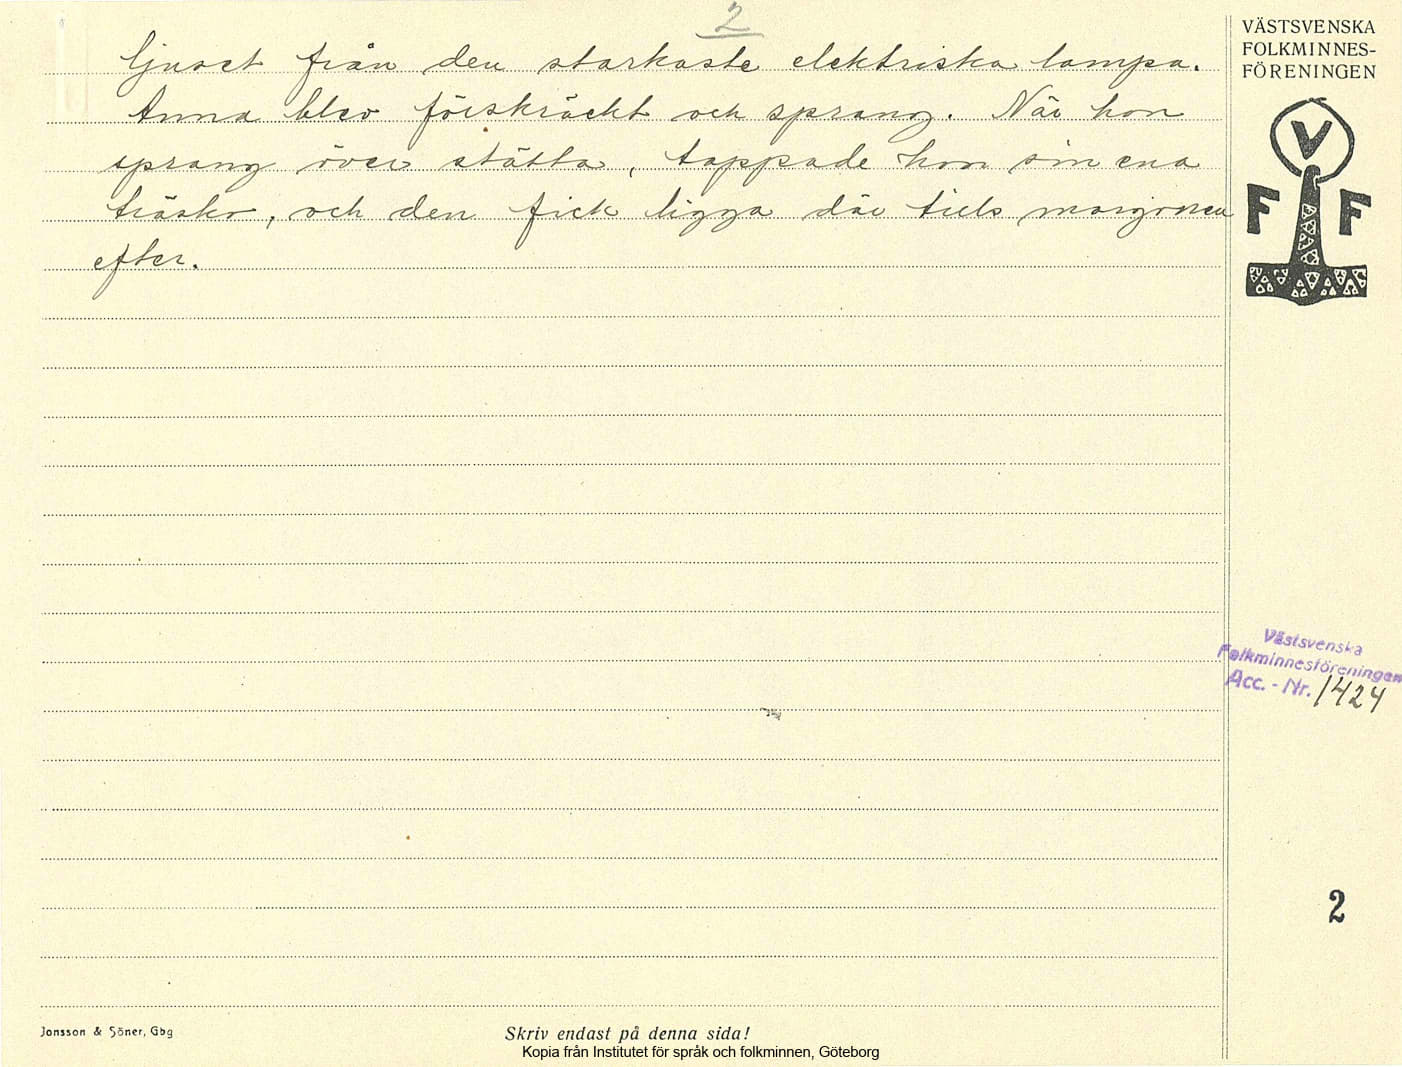 2
ljuset från den starkaste elektriska lampa.
Anna blev förskräckt och sprang. När hon
sprang över stätta, tappade hon sin ena
träsko, och den fick ligga där tills morgonen
efter.
VÄSTSVENSKA
FOLKMINNES-
FÖRENINGEN
V
F F
Västsvenska
Folkminnesföreningen
Acc. - Nr. 1424
2
Jonsson & Söner, Gbg
Skriv endast på denna sida!
Kopia från Institutet för språk och folkminnen, Göteborg